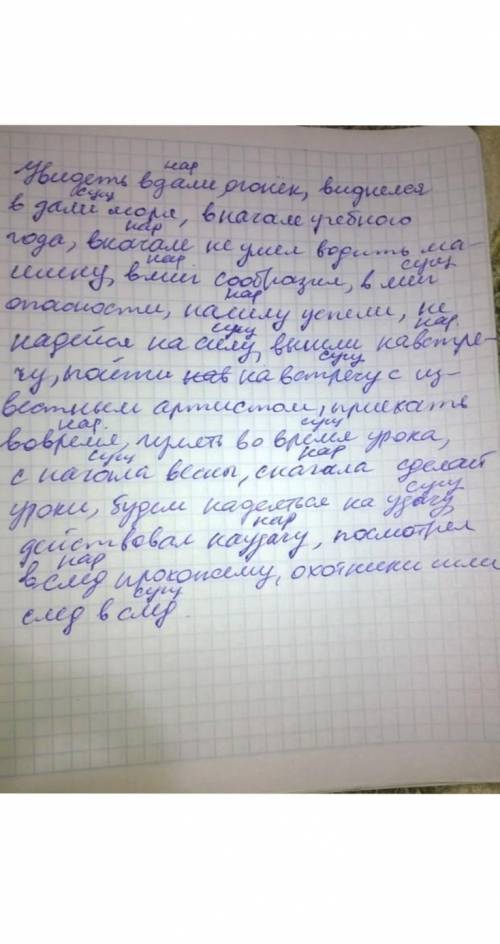 нар
Увидеть вдали огонёк, виднелся
сущ
в дали моря, в начале учебного
нар
года, вначале не умел водить ма-
нар сущ
шину, вмиг сообразил, в миг
нар
опасности, насилу успели, не
сущ нар.
надейся на силу, вышли навстре-
сущ
чу, пойти на встречу с из-
вестным артистом, приехать
нар. сущ
вовремя, гулять во время урока,
сущ нар
с начала весны, сначала сделай
сущ
уроки, будем надеяться на удачу,
нар
действовал наудачу, посмотрел
нар
вслед прохожему, охотники шли
сущ
след в след.